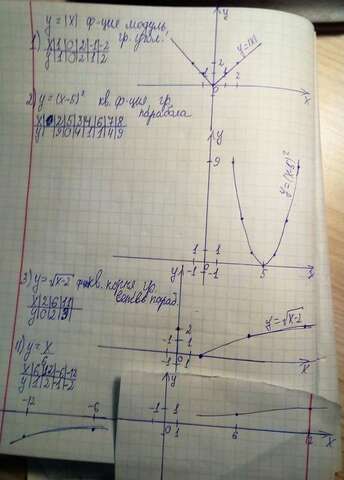 y = |x| ф-ция модуль,
1) гр. угол.
x|1|0|2|-1|-2
y|1|0|2|1|2
y
y=|x|
2
1
-1 0 1 2
x
2) y = (x-5)² кв. ф-ция, гр.
парабола
x|2|5|3|4|6|7|8
y|9|0|4|1|1|4|9
y
9
y=(x-5)²
1 1
-1 0 1 5
-1
3) y = √x-2 кв. корня гр.
ветвь параб.
x|2|6|11|
y|0|2|3|
y
2
y=√x-2
1
-1 0 1
x
4) y = x
6
x|6|12|-6|-12
y|1|2|-1|-2
y
-12 -6
-1 1
0 1 6 12
x